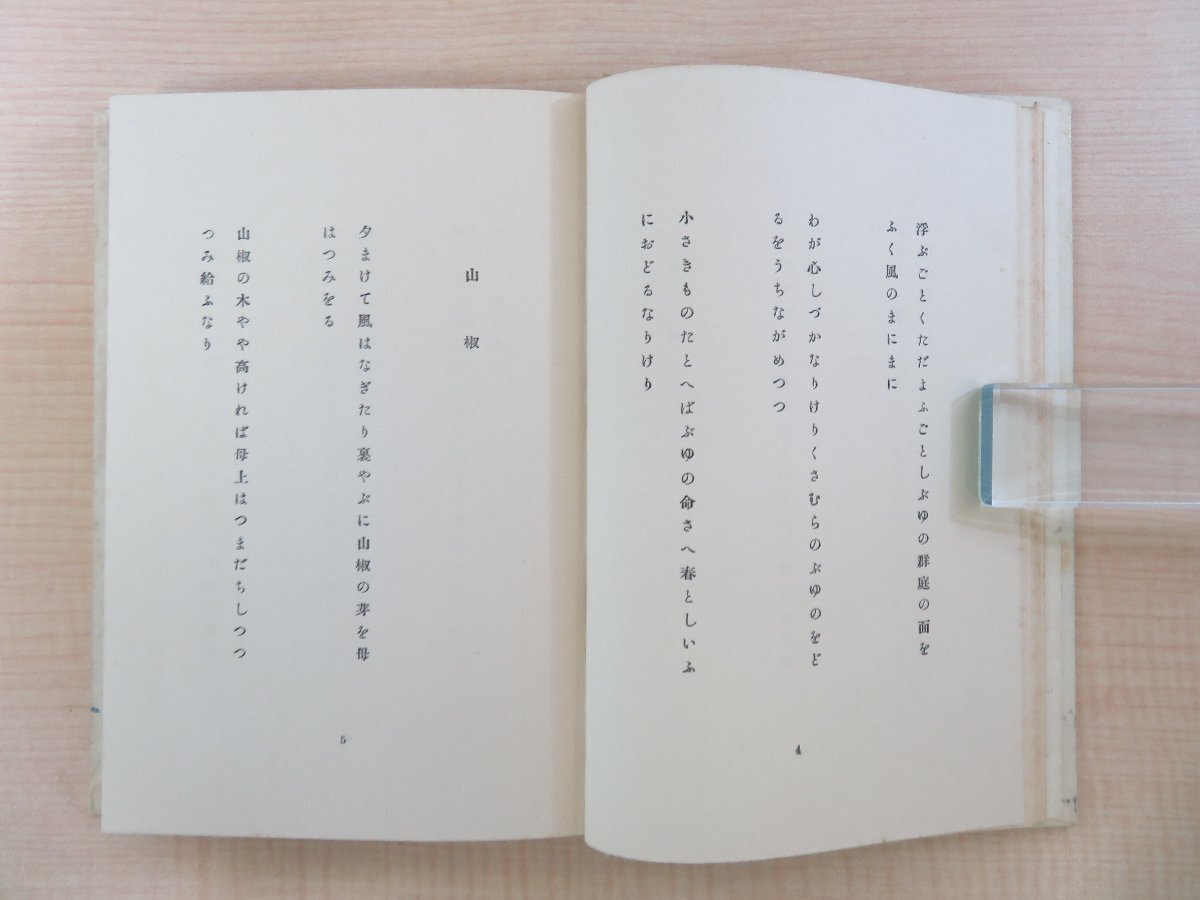 浮ぶごとくただよふごとしぶゆの群庭の面を
ふく風のまにまに
わが心しづかなりけりくさむらのぶゆのをど
るをうちながめつつ
小さきものたとへばぶゆの命さへ春としいふ
におどるなりけり
4
山椒
夕まけて風はなぎたり裏やぶに山椒の芽を母
はつみをる
山椒の木やや高ければ母上はつまだちしつつ
つみ給ふなり
5